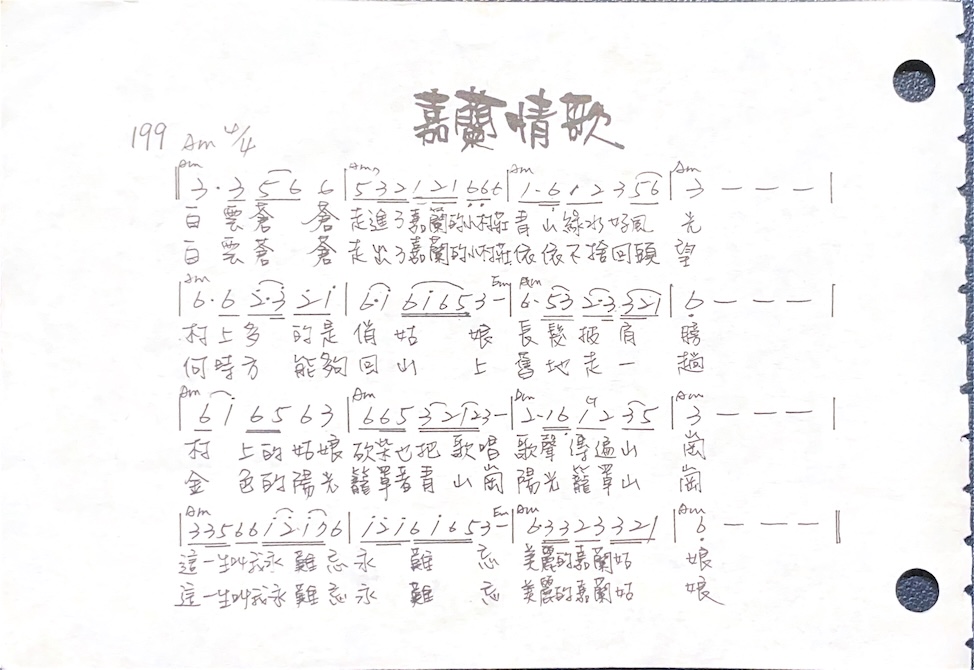 嘉蘭情歌
199 Am 4/4
Am Am7 Am Am
3·3 56 6 | 532 121 666 | 1·6 1 2 3 56 | 3 — — — |
白雲蒼蒼走進了嘉蘭的小村莊青山綠水好風光
白雲蒼蒼走出了嘉蘭的小村莊依依不捨回頭望
Am Em Am
6·6 2·3 21 | 6·1 6165 3— | 6·53 2·3 321 | 6 — — — |
村上多的是俏姑娘長髮披肩膀
何時方能夠回山上舊地走一趟
Am Am Dm G Am
61 65 63 | 665 32123— | 2·16 12 35 | 3 — — — |
村上的姑娘砍柴也把歌唱歌聲傳遍山崗
金色的陽光籠罩著青山崗陽光籠罩山崗
Am Em Am Am
33566 12136 | 1216165 3— | 633 23 321 | 6 — — — ‖
這一生叫我永難忘永難忘美麗的嘉蘭姑娘
這一生叫我永難忘永難忘美麗的嘉蘭姑娘